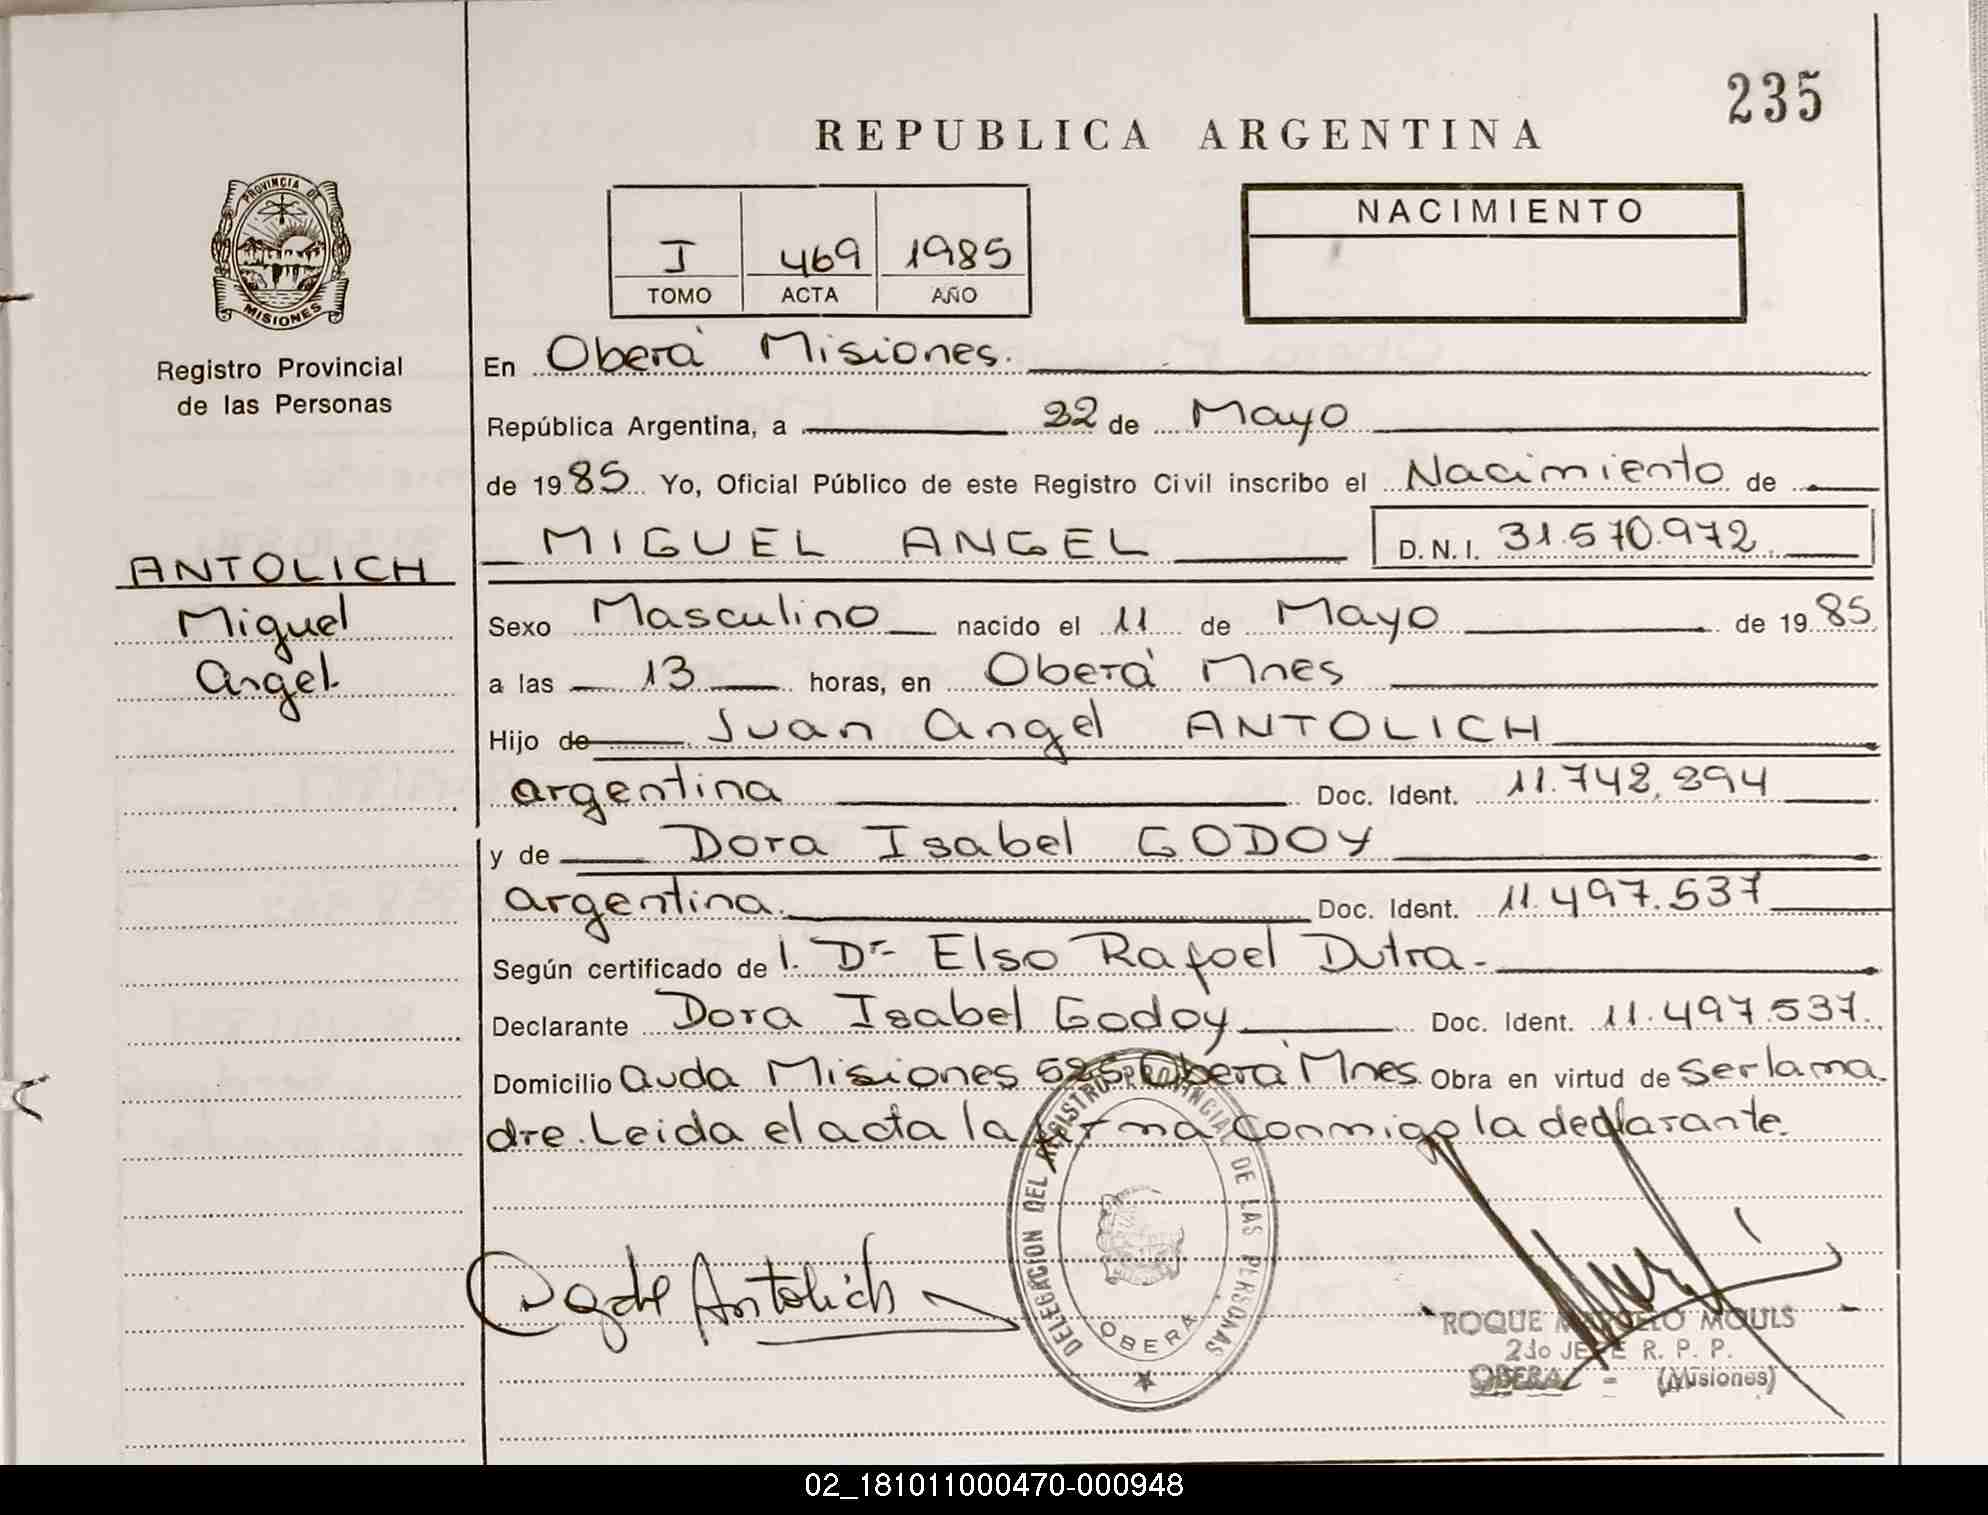 235
REPUBLICA ARGENTINA
PROVINCIA DE
MISIONES
Registro Provincial
de las Personas
I 469 1985
TOMO ACTA AÑO
NACIMIENTO
En Oberá Misiones.
República Argentina, a 22 de Mayo
de 1985 Yo, Oficial Público de este Registro Civil inscribo el Nacimiento de
MIGUEL ANGEL D.N.I. 31.570.972
ANTOLICH
Miguel
Angel
Sexo Masculino nacido el 11 de Mayo de 1985
a las 13 horas, en Oberá Mnes
Hijo de Juan Angel ANTOLICH
argentina Doc. Ident. 11.742.294
y de Dora Isabel GODOY
argentina. Doc. Ident. 11.497.537
Según certificado de l. Dr- Elso Rafael Dutra-
Declarante Dora Isabel Godoy Doc. Ident. 11.497.537.
Domicilio Avda Misiones 525 Oberá Mnes. Obra en virtud de ser la ma
dre. Leida el acta la firma conmigo la declarante.
DELEGACION DEL REGISTRO PROVINCIAL DE LAS PERSONAS
OBERA
Antolich
ROQUE MARCELO MOULS
2do JEFE R. P. P.
OBERA - (Misiones)
02_181011000470-000948